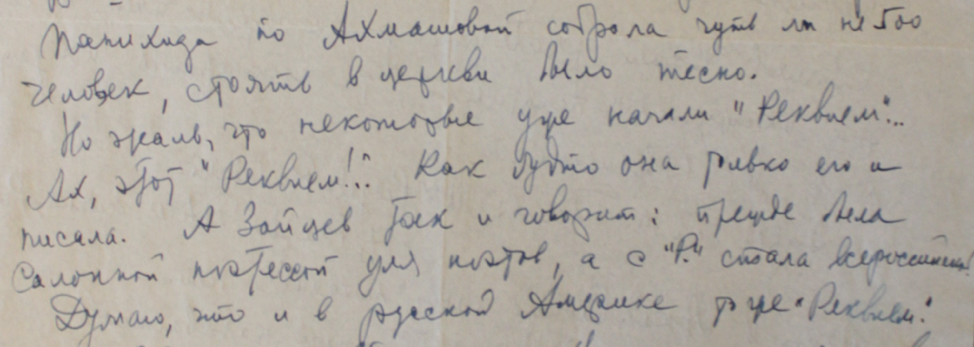 Панихида по Ахматовой собрала чуть ли не 500
человек, стоять в церкви было тесно.
Но жаль, что некоторые уже начали "Реквием"...
Ах, этот "Реквием!.." Как будто она только его и
писала. А Зайцев так и говорит: прежде была
салонной поэтессой для поэтов, а с "Р." стала всероссийской
Думаю, что и в русской Америке тоже "Реквием."